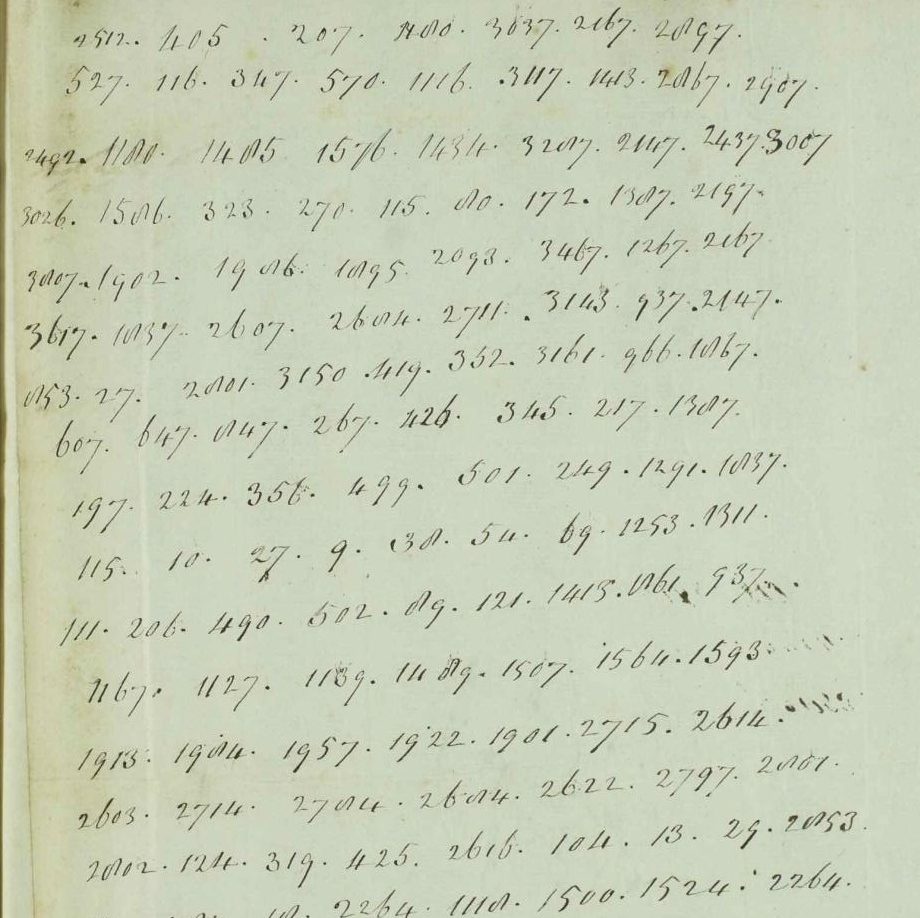 2512. 405 . 207. 1480. 3037. 2167. 2897.
527. 116. 347. 570. 1116. .3117. 1413. 2867. 2907.
2492. 1180. 1485 1576. 1434. 3287. 2147. 2437. 3007
3026. 1586. 323. 270. 115. 80. 172. 1387. 2197.
3807. 1902. 1986. 1895. 2093. 3467. 1267. 2167
3617. 1837. 2607. 2684. 2711. .3143. 937. .2147.
853. 27. 2801. 3150 .419. 352. 3161. 966. 1867.
607. 647. 847. 267. 426. 345. 217. 1387.
197. 224. 356. 499. 501. 249. 1291. 1837.
115. 10. 27. 9. 38. 54. 69. 1253. 1311.
111. 206. 490. 502. 89. 121. 1413. 1861. 937.
1167. 1127. 1139. 1489. 1507. 1564. 1593
1913. 1984. 1957. 1922. 1901. 2715. 2614.
2603. 2714. 2784. 2684. 2622. 2797. 2801.
2802. 124. 319. 425. 2616. 104. 13. 29. 2853.
18. 2264. 1118. 1500. 1524. 2264.